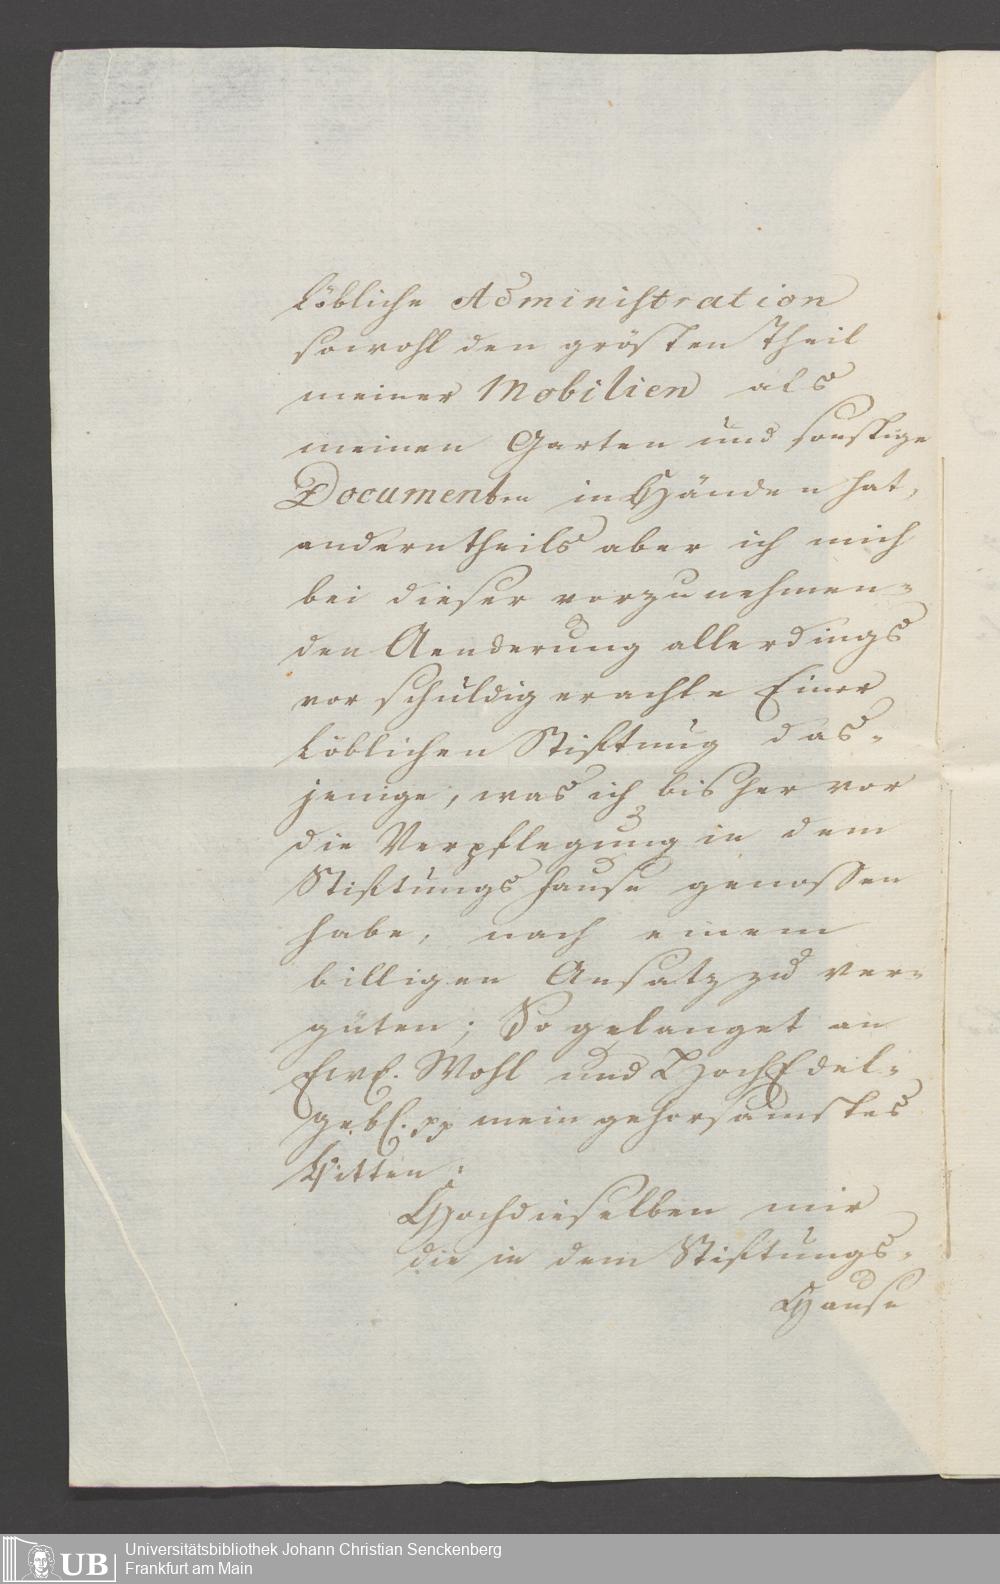 Löbliche Administration
sowohl den grösten Theil
meiner Mobilien als
meinen Garten und sonstige
Documenten in Händen hat,
anderntheils aber ich mich
bei dieser vorzunehmen-
den Aenderung allerdings
vor schuldig erachte Einer
Löblichen Stiftung das-
jenige, was ich bisher vor
die Verpflegung in dem
Stiftungs Hause genossen
habe, nach einem
billigen Ansatz zu ver-
güten; So gelanget an
Ew. Wohl und HochEdel-
gebl. pp mein gehorsamstes
Bitten:
Hochdieselben mir
die in dem Stiftungs-
Hause
UB
Universitätsbibliothek Johann Christian Senckenberg
Frankfurt am Main